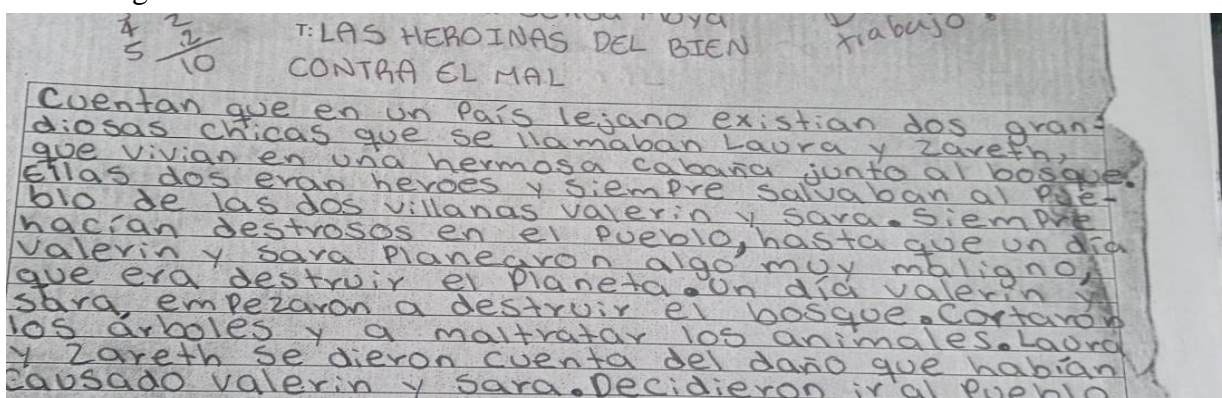 T: LAS HEROINAS DEL BIEN
trabajo
CONTRA EL MAL
4 2
5 2
10
Cuentan que en un País lejano existian dos gran-
diosas chicas que se llamaban Laura y Zareth,
que vivian en una hermosa cabaña junto al bosque.
Ellas dos eran heroes y siempre salvaban al Pue-
blo de las dos villanas valerin y sara. Siempre
hacían destrosos en el pueblo, hasta que un día
valerin y sara Planearon algo muy maligno,
que era destruir el Planeta. un día valerin y
sara empezaron a destruir el bosque. Cortaron
los árboles y a maltratar los animales. Laura
y Zareth se dieron cuenta del daño que habían
causado valerin y sara. Decidieron ir al Pueblo